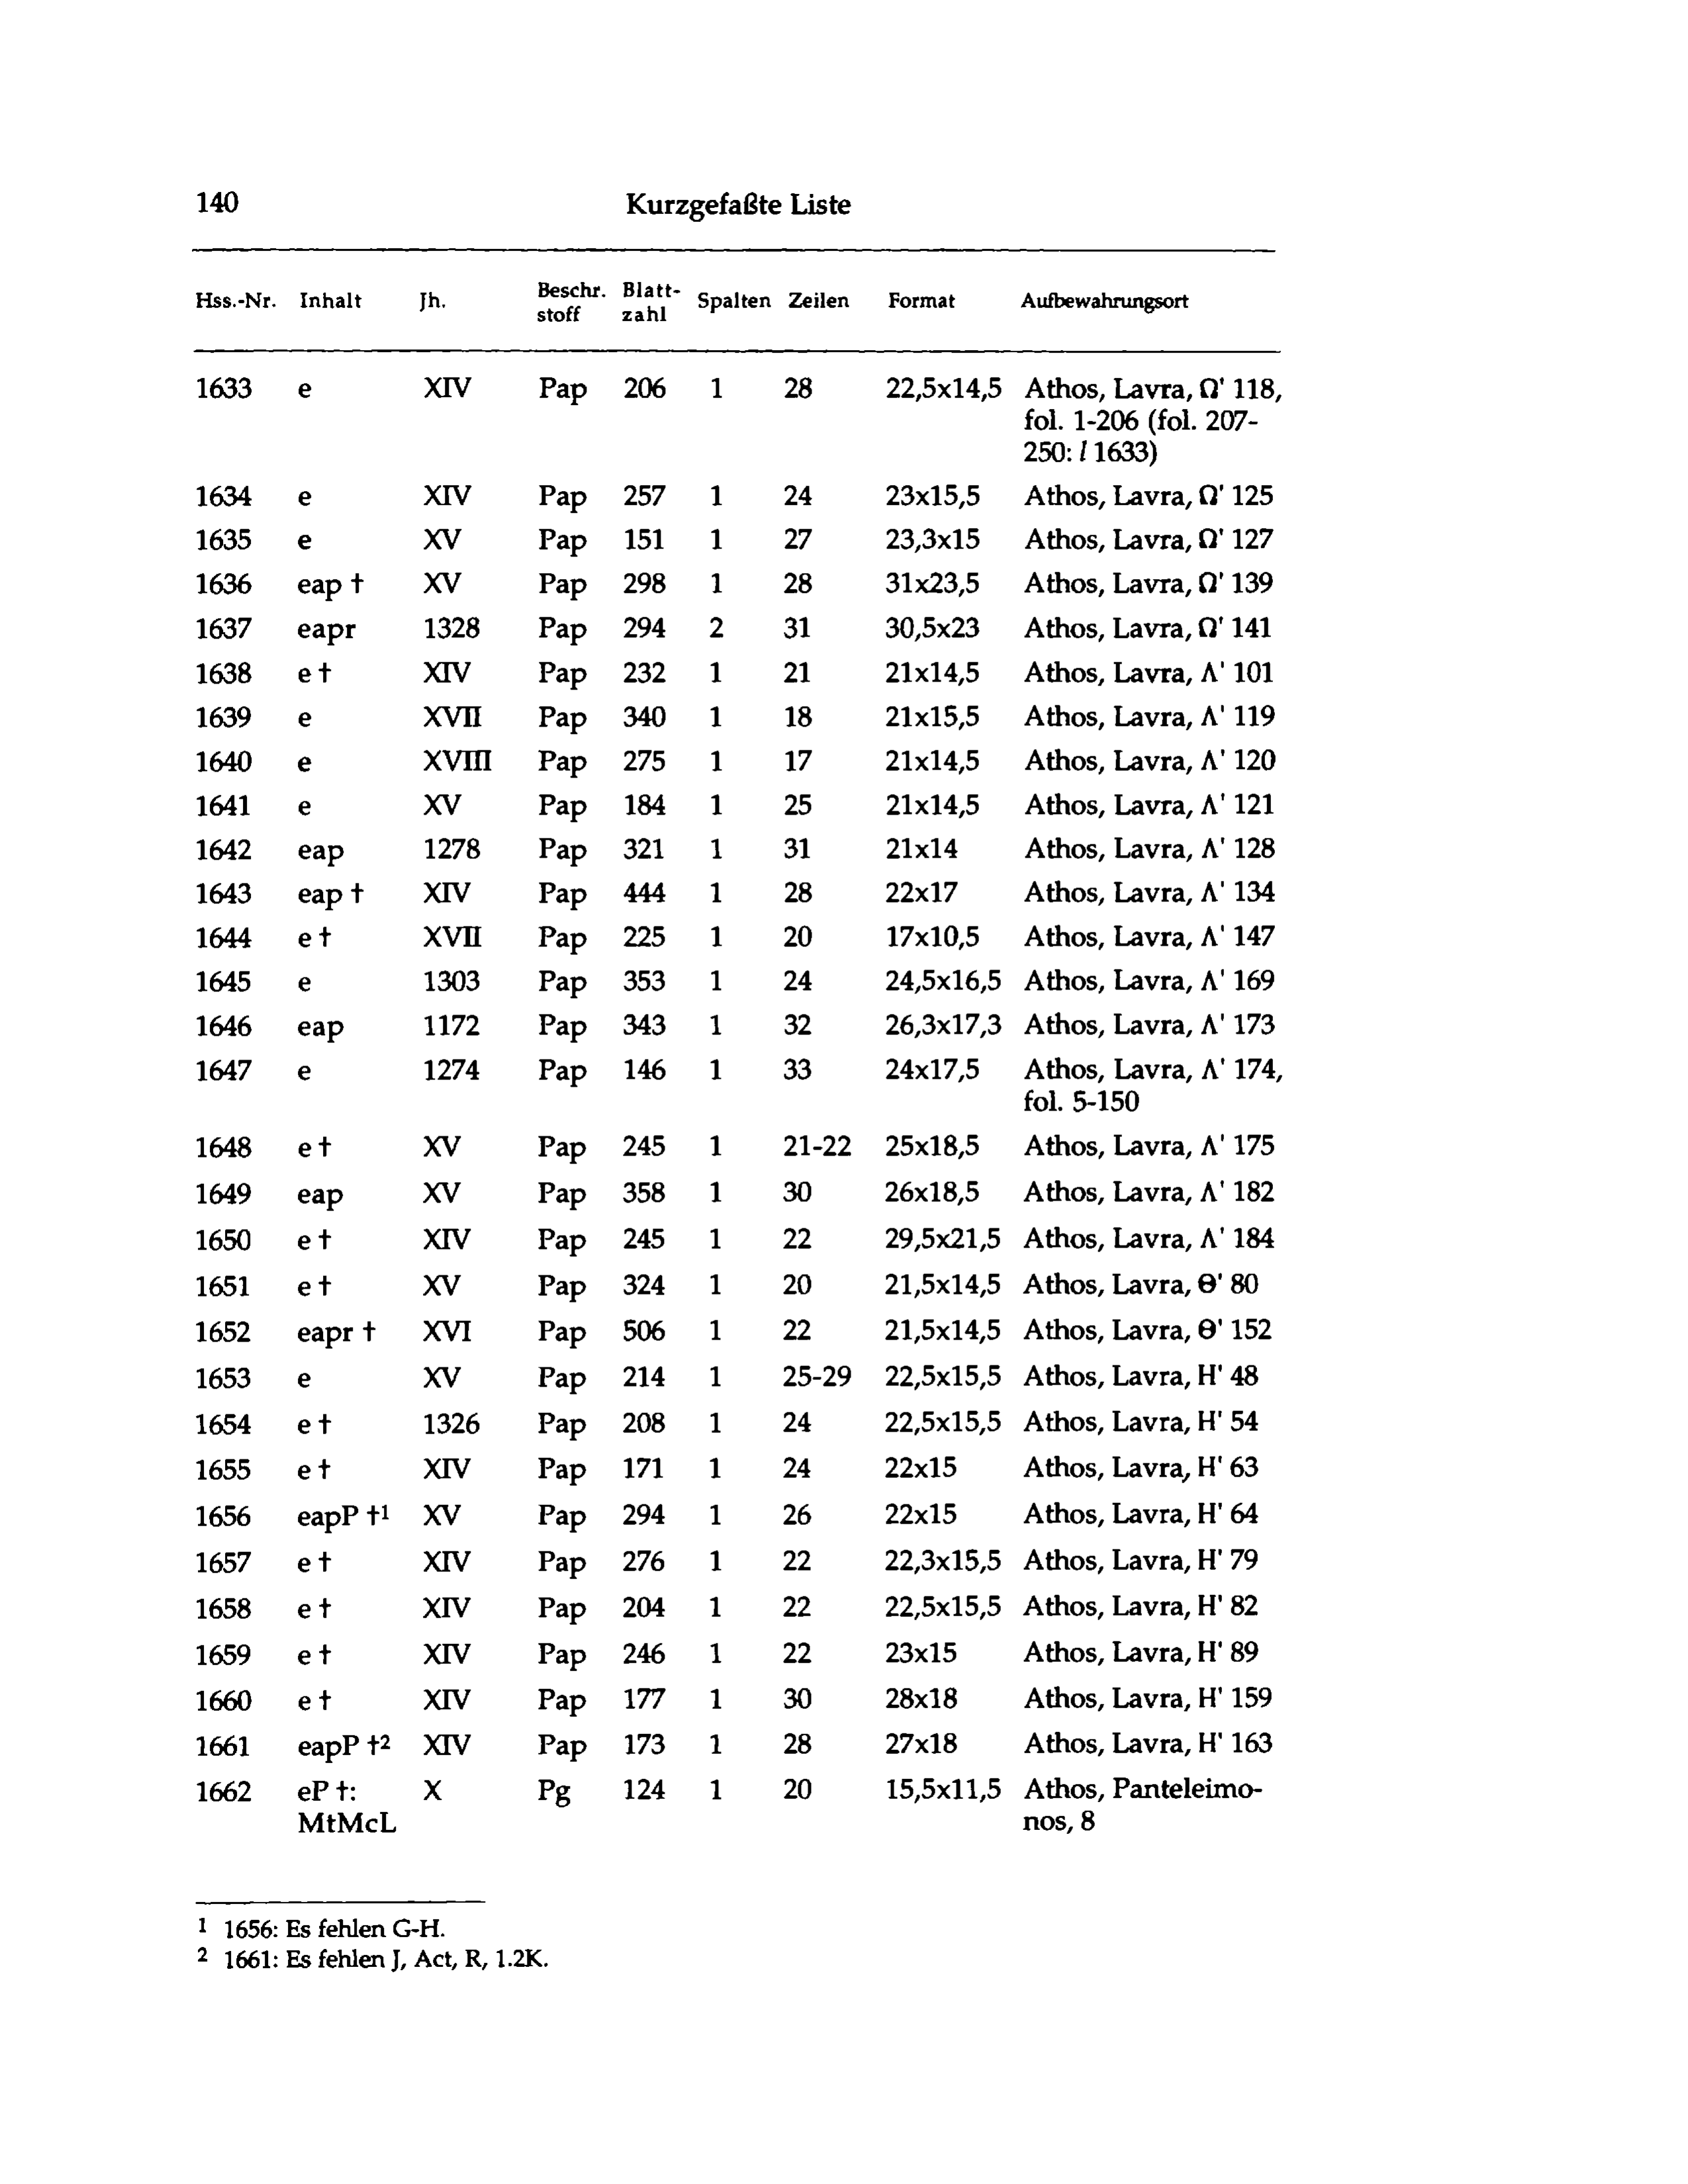 140 Kurzgefaßte Liste
Hss.-Nr. Inhalt Jh. Beschr. stoff Blatt- zahl Spalten Zeilen Format Aufbewahrungsort
1633 e XIV Pap 206 1 28 22,5x14,5 Athos, Lavra, Ω' 118,
fol. 1-206 (fol. 207-
250: l 1633)
1634 e XIV Pap 257 1 24 23x15,5 Athos, Lavra, Ω' 125
1635 e XV Pap 151 1 27 23,3x15 Athos, Lavra, Ω' 127
1636 eap † XV Pap 298 1 28 31x23,5 Athos, Lavra, Ω' 139
1637 eapr 1328 Pap 294 2 31 30,5x23 Athos, Lavra, Ω' 141
1638 e † XIV Pap 232 1 21 21x14,5 Athos, Lavra, Λ' 101
1639 e XVII Pap 340 1 18 21x15,5 Athos, Lavra, Λ' 119
1640 e XVIII Pap 275 1 17 21x14,5 Athos, Lavra, Λ' 120
1641 e XV Pap 184 1 25 21x14,5 Athos, Lavra, Λ' 121
1642 eap 1278 Pap 321 1 31 21x14 Athos, Lavra, Λ' 128
1643 eap † XIV Pap 444 1 28 22x17 Athos, Lavra, Λ' 134
1644 e † XVII Pap 225 1 20 17x10,5 Athos, Lavra, Λ' 147
1645 e 1303 Pap 353 1 24 24,5x16,5 Athos, Lavra, Λ' 169
1646 eap 1172 Pap 343 1 32 26,3x17,3 Athos, Lavra, Λ' 173
1647 e 1274 Pap 146 1 33 24x17,5 Athos, Lavra, Λ' 174,
fol. 5-150
1648 e † XV Pap 245 1 21-22 25x18,5 Athos, Lavra, Λ' 175
1649 eap XV Pap 358 1 30 26x18,5 Athos, Lavra, Λ' 182
1650 e † XIV Pap 245 1 22 29,5x21,5 Athos, Lavra, Λ' 184
1651 e † XV Pap 324 1 20 21,5x14,5 Athos, Lavra, Θ' 80
1652 eapr † XVI Pap 506 1 22 21,5x14,5 Athos, Lavra, Θ' 152
1653 e XV Pap 214 1 25-29 22,5x15,5 Athos, Lavra, H' 48
1654 e † 1326 Pap 208 1 24 22,5x15,5 Athos, Lavra, H' 54
1655 e † XIV Pap 171 1 24 22x15 Athos, Lavra, H' 63
1656 eapP †¹ XV Pap 294 1 26 22x15 Athos, Lavra, H' 64
1657 e † XIV Pap 276 1 22 22,3x15,5 Athos, Lavra, H' 79
1658 e † XIV Pap 204 1 22 22,5x15,5 Athos, Lavra, H' 82
1659 e † XIV Pap 246 1 22 23x15 Athos, Lavra, H' 89
1660 e † XIV Pap 177 1 30 28x18 Athos, Lavra, H' 159
1661 eapP †² XIV Pap 173 1 28 27x18 Athos, Lavra, H' 163
1662 eP †: X Pg 124 1 20 15,5x11,5 Athos, Panteleimo-
MtMcL nos, 8
¹ 1656: Es fehlen G-H.
² 1661: Es fehlen J, Act, R, 1.2K.